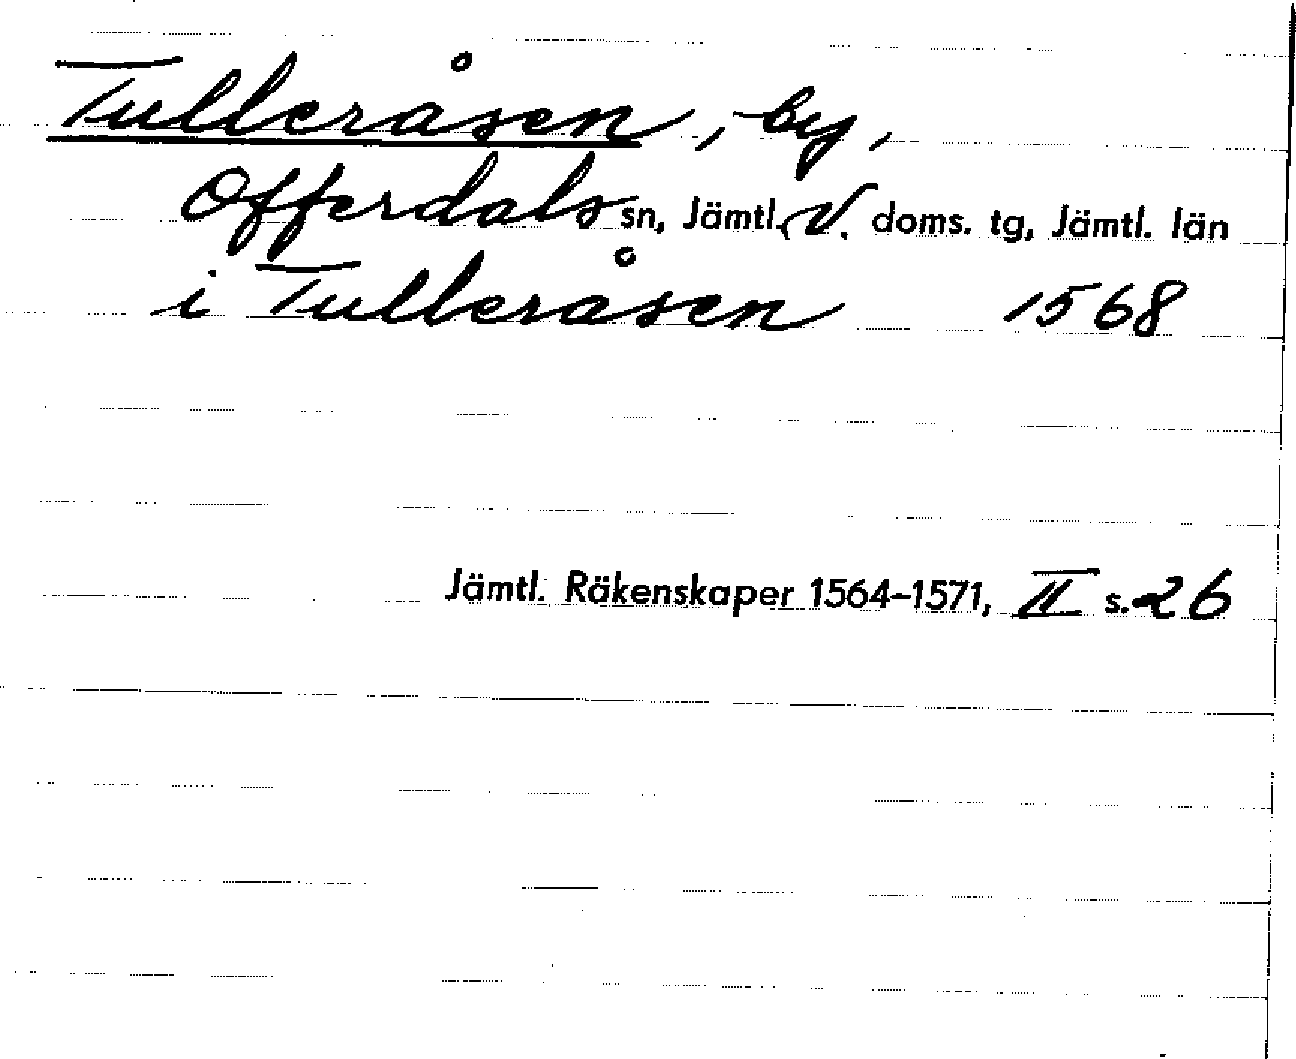 Tulleråsen, by,
Offerdals sn, Jämtl. V. doms. tg, Jämtl. län
i Tulleråsen 1568
Jämtl. Räkenskaper 1564–1571, II s. 26